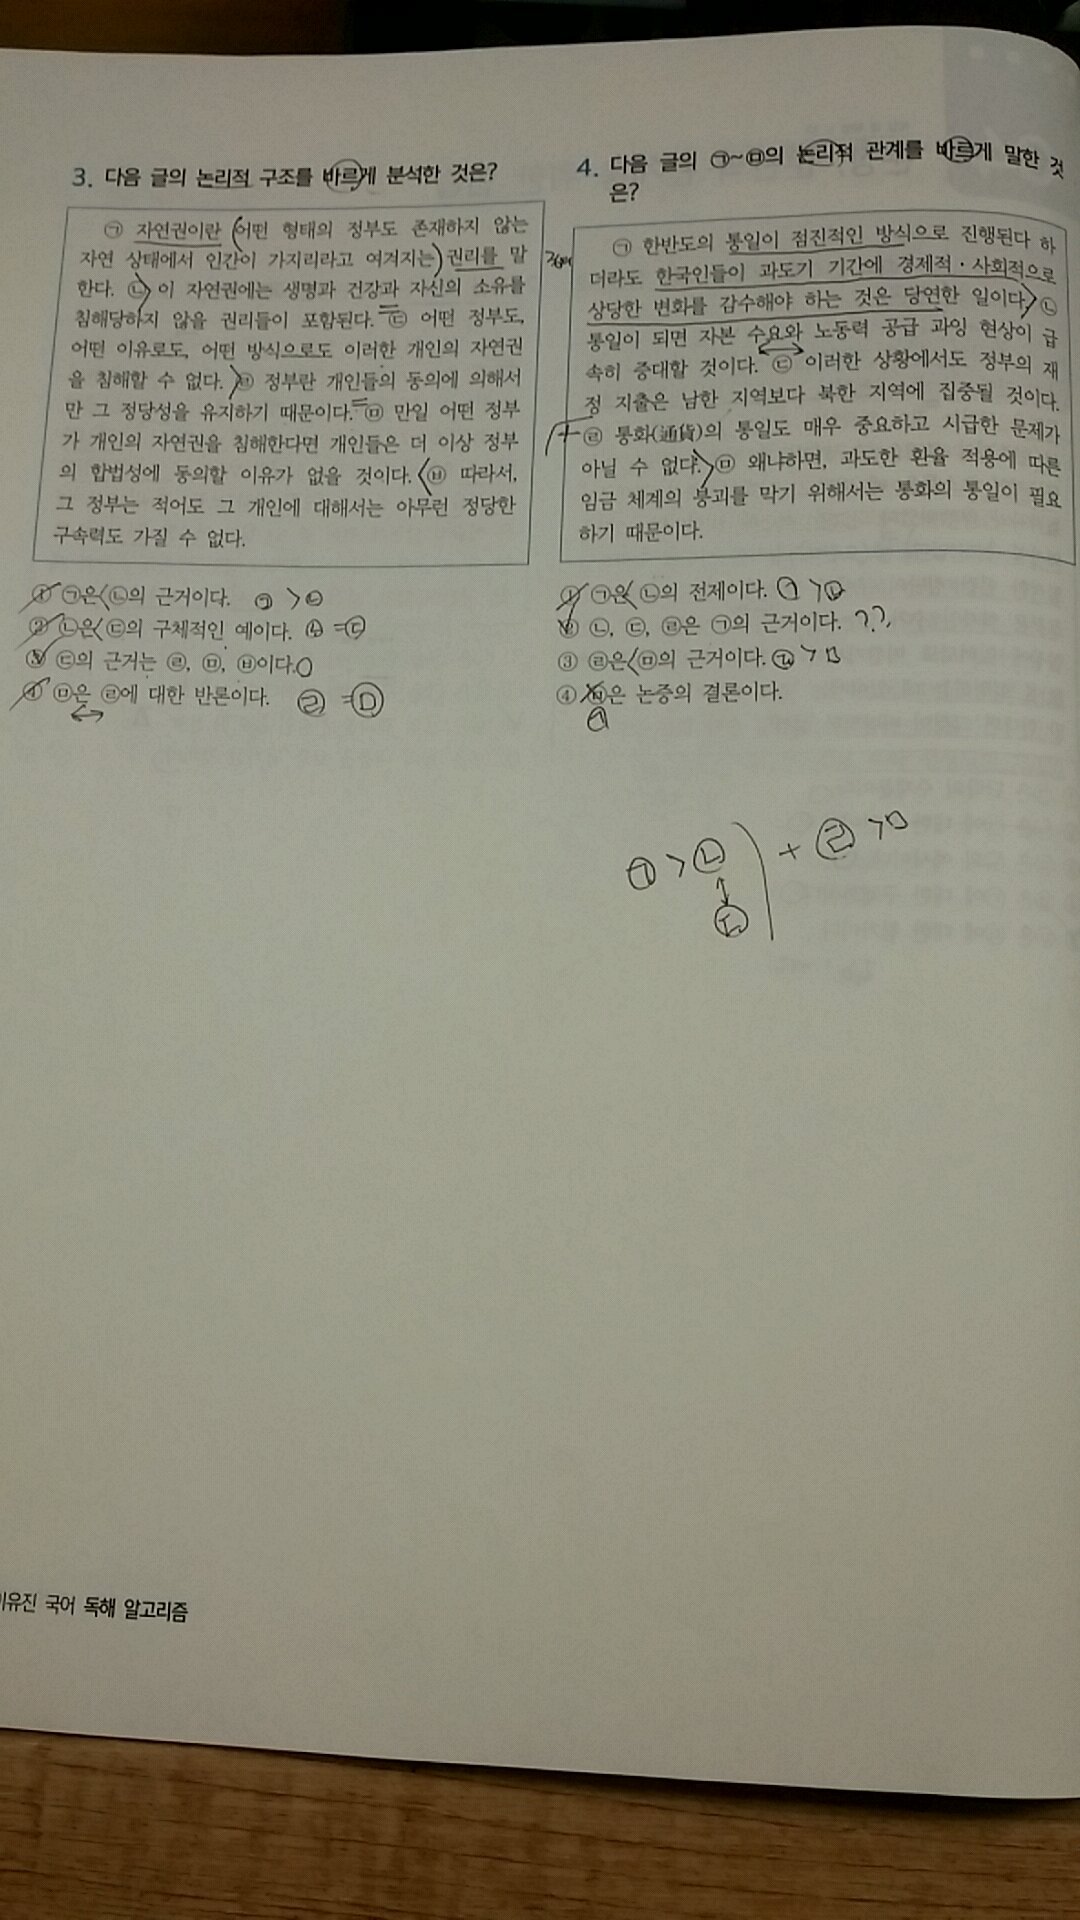 3. 다음 글의 논리적 구조를 바르게 분석한 것은?
㉠ 자연권이란 어떤 형태의 정부도 존재하지 않는
자연 상태에서 인간이 가지리라고 여겨지는 권리를 말
한다. ㉡ 이 자연권에는 생명과 건강과 자신의 소유를
침해당하지 않을 권리들이 포함된다. ㉢ 어떤 정부도,
어떤 이유로도, 어떤 방식으로도 이러한 개인의 자연권
을 침해할 수 없다. ㉣ 정부란 개인들의 동의에 의해서
만 그 정당성을 유지하기 때문이다. ㉤ 만일 어떤 정부
가 개인의 자연권을 침해한다면 개인들은 더 이상 정부
의 합법성에 동의할 이유가 없을 것이다. ㉥ 따라서,
그 정부는 적어도 그 개인에 대해서는 아무런 정당한
구속력도 가질 수 없다.
① ㉠은 ㉡의 근거이다. ㉠ > ㉡
② ㉡은 ㉢의 구체적인 예이다. ㉡ = ㉢
③ ㉢의 근거는 ㉣, ㉤, ㉥이다. O
④ ㉤은 ㉣에 대한 반론이다. ㉣ = ㉤
4. 다음 글의 ㉠~㉤의 논리적 관계를 바르게 말한 것
은?
㉠ 한반도의 통일이 점진적인 방식으로 진행된다 하
더라도 한국인들이 과도기 기간에 경제적·사회적으로
상당한 변화를 감수해야 하는 것은 당연한 일이다. ㉡
통일이 되면 자본 수요와 노동력 공급 과잉 현상이 급
속히 증대할 것이다. ㉢ 이러한 상황에서도 정부의 재
정 지출은 남한 지역보다 북한 지역에 집중될 것이다.
+ ㉣ 통화(通貨)의 통일도 매우 중요하고 시급한 문제가
아닐 수 없다. ㉤ 왜냐하면, 과도한 환율 적용에 따른
임금 체계의 붕괴를 막기 위해서는 통화의 통일이 필요
하기 때문이다.
① ㉠은 ㉡의 전제이다. ㉠ > ㉡
② ㉡, ㉢, ㉣은 ㉠의 근거이다. ??
③ ㉣은 ㉤의 근거이다. ㉣ > ㅁ
④ ㉤은 논증의 결론이다.
㉠
㉠ > ㉡ + ㉣ > ㅁ
㉢
이유진 국어 독해 알고리즘